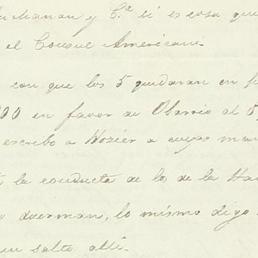 y C.ª si es cosa que
el Consul Américan
con que los 5 quedaran en
00 en favor de Obarrio al 5
escribo a Hozier a cuyas man
la conducta de lo de la Ha
duerman, lo mismo digo
un salto allí.